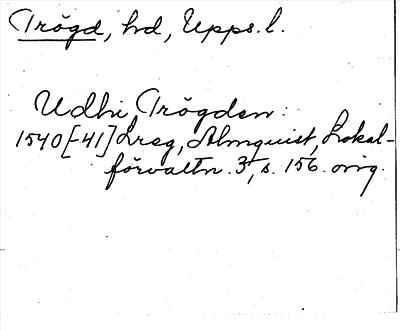 Trögd, hd, Upps. l.
Udhi Trögden:
1540[-41] Lreg, Almquist, Lokal-
förvaltn. 3, s. 156. orig.